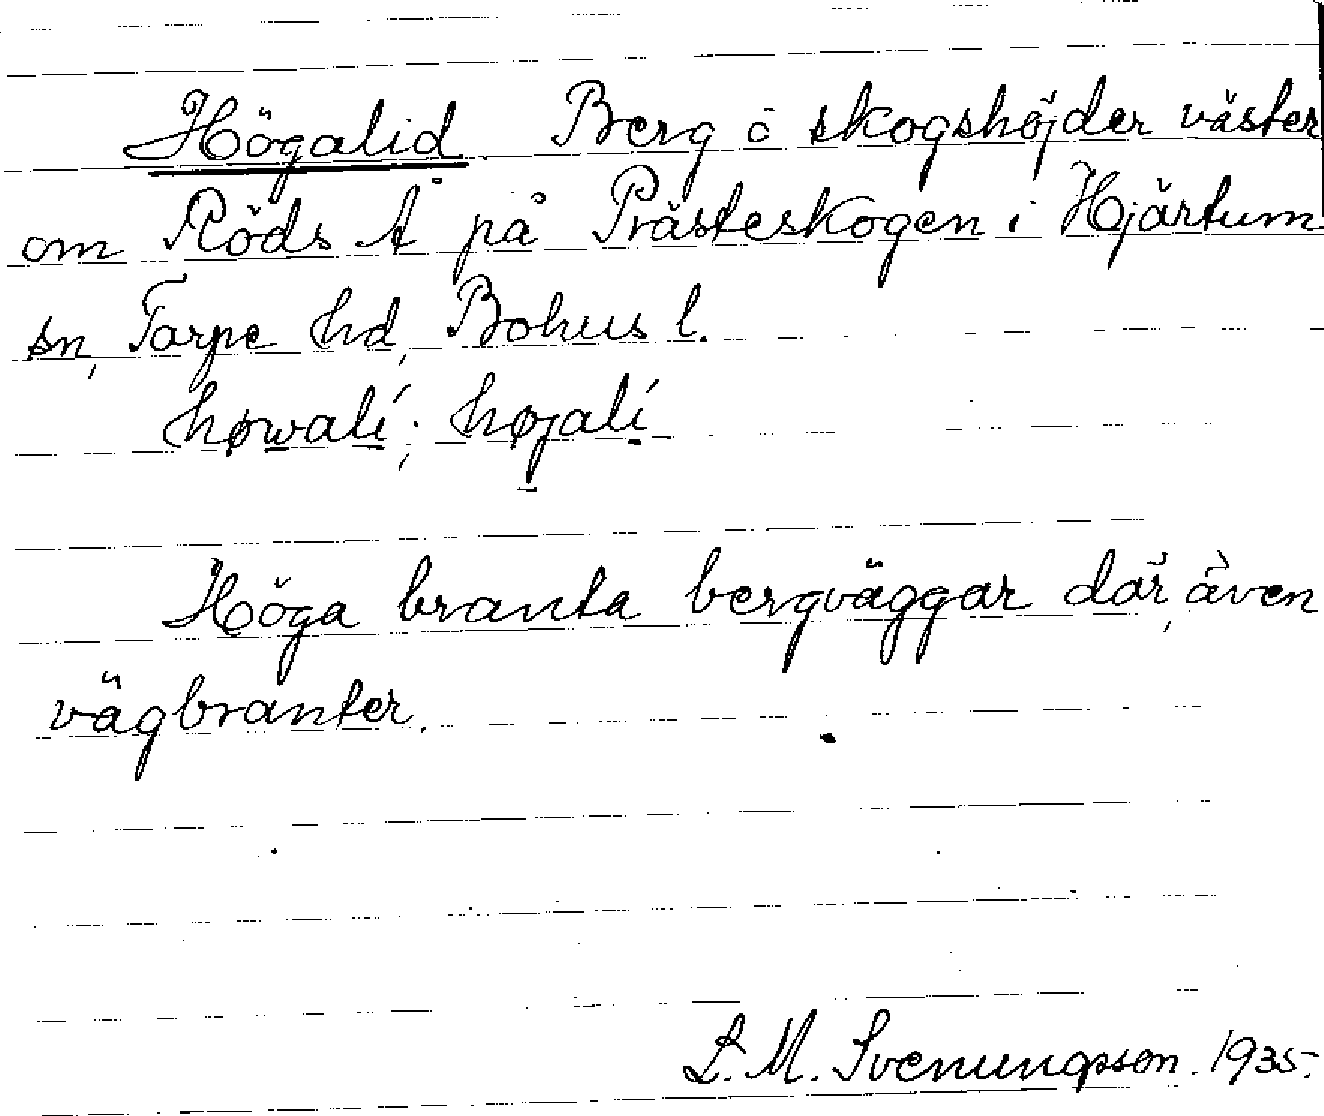 Högalid Berg o skogshöjder väster
om Röds Å på Prästeskogen i Hjärtum
sn, Torpe hd, Bohus l.
høwalí; højalí
Höga branta bergväggar där, även
vägbranter.
L. M. Svenungsson. 1935.